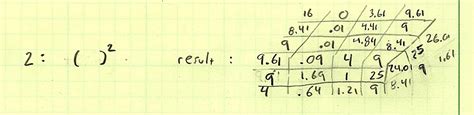 16 0 3.61 9.61
8.41 .01 4.41 9
9 .01 4.84 8.41 26.01
2: ( )² result: 9.61 .09 4 9 25
9 1.69 1 25 24.01 9 1.61
4 .64 1.21 9 8.41